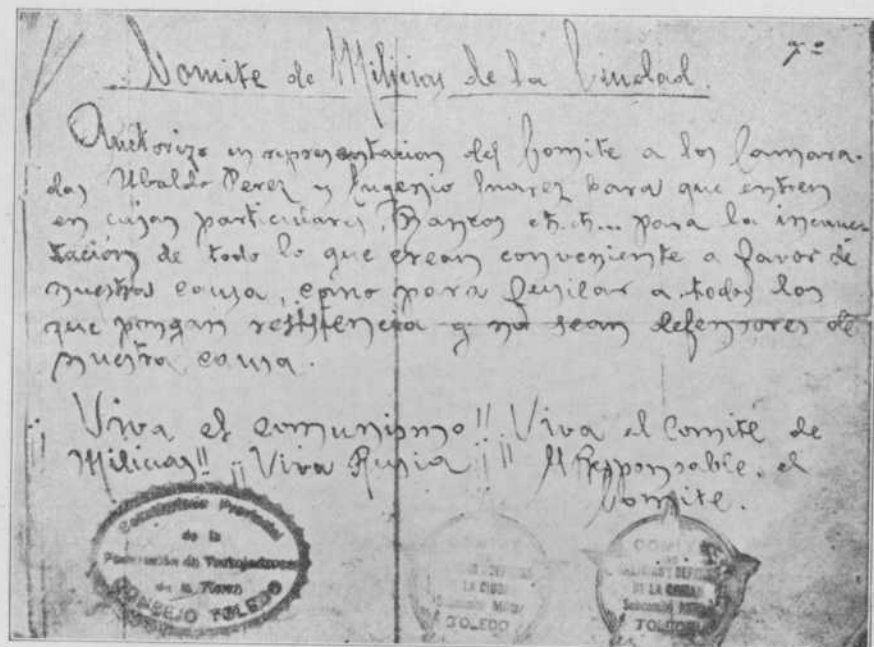 7º
Comite de Milicias de la Ciudad.
Auctorizo en representacion del Comite a los Camara-
das Ubaldo Perez y Eugenio Suarez para que entren
en casas particulares, Bancos etc.etc... para la incau-
tación de todo lo que crean conveniente a favor de
nuestra causa, como para fusilar a todos los
que pongan resistencia y no sean defensores de
nuestra causa.
¡¡Viva el comunismo!! Viva el Comité de
Milicias!! ¡¡Viva Rusia!! El Responsable. el
Comite.
Secretariado Provincial
de la
Federación de Trabajadores
de la Tierra
CONSEJO TOLEDO
COMITE
LA CIUDAD
TOLEDO
COMITE
DE
MILICIAS Y DEFENSA
DE LA CIUDAD
Subcomité
TOLEDO